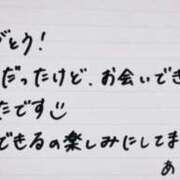 がとう！
だったけど、お会いでき
たです
できるの楽しみにしてま
あ